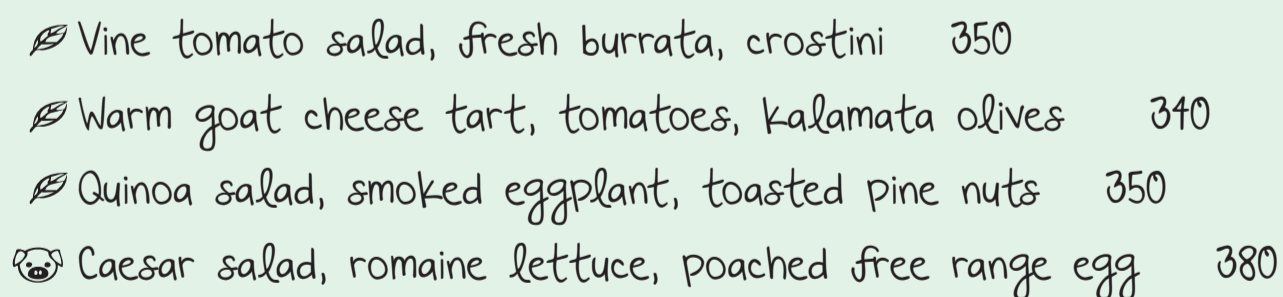 Vine tomato salad, fresh burrata, crostini 350
Warm goat cheese tart, tomatoes, kalamata olives 340
Quinoa salad, smoked eggplant, toasted pine nuts 350
Caesar salad, romaine lettuce, poached free range egg 380